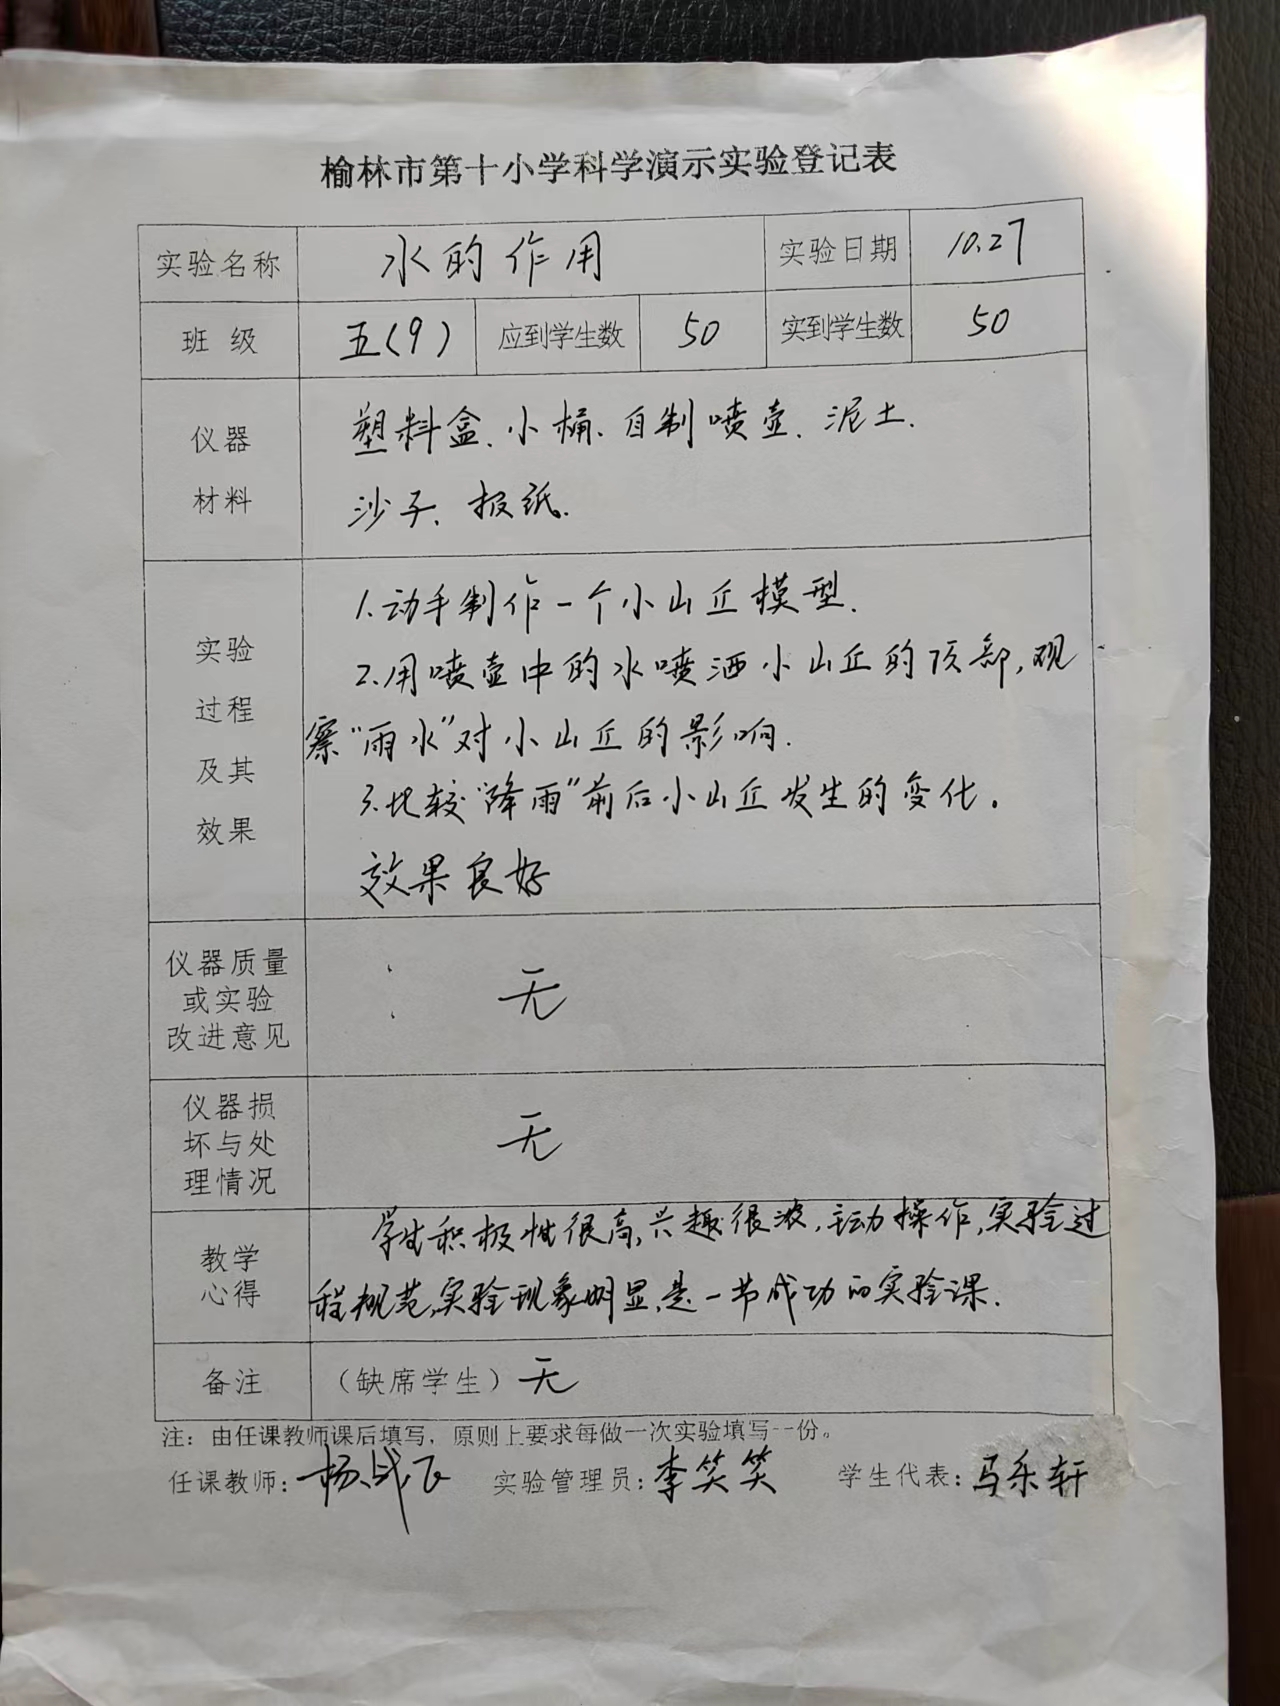 榆林市第十小学科学演示实验登记表
实验名称 水的作用 实验日期 10.27
班 级 五(9) 应到学生数 50 实到学生数 50
仪器
材料
塑料盒、小桶、自制喷壶、泥土、
沙子、报纸.
实验
过程
及其
效果
1.动手制作一个小山丘模型.
2.用喷壶中的水喷洒小山丘的顶部,观
察“雨水”对小山丘的影响.
3.比较“降雨”前后小山丘发生的变化。
效果良好
仪器质量
或实验
改进意见
无
仪器损
坏与处
理情况
无
教学
心得
学生积极性很高,兴趣很浓,主动操作,实验过
程规范,实验现象明显,是一节成功的实验课.
备注 (缺席学生) 无
注: 由任课教师课后填写, 原则上要求每做一次实验填写一份。
任课教师: 杨战飞 实验管理员: 李笑笑 学生代表: 马乐轩